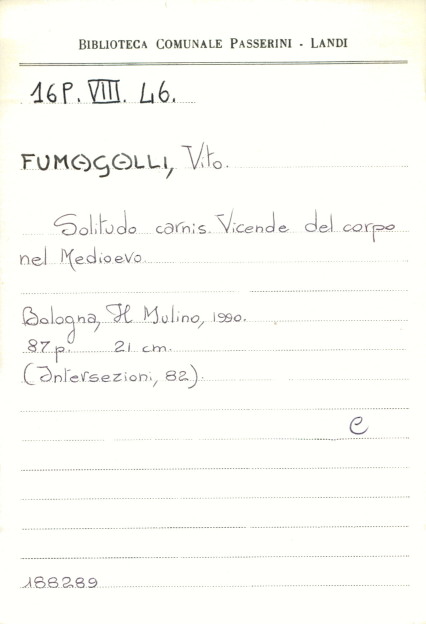 BIBLIOTECA COMUNALE PASSERINI - LANDI
16 P. VIII. 46.
FUMAGALLI, Vito.
Solitudo carnis. Vicende del corpo
nel Medioevo.
Bologna, Il Mulino, 1990.
87 p. 21 cm.
(Intersezioni, 82).
C
188289